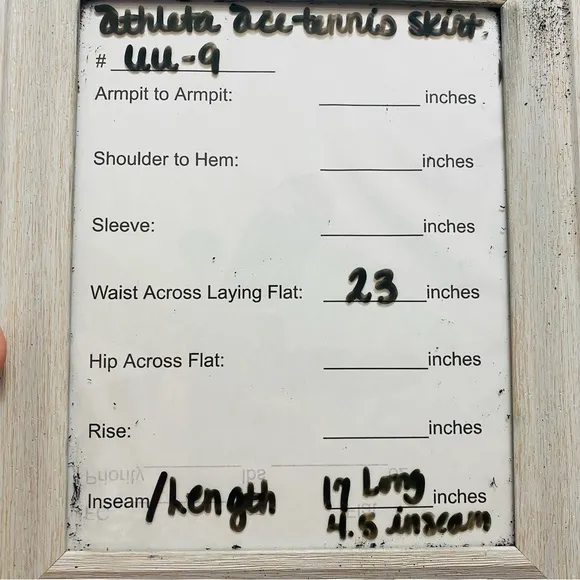 athleta ace tennis skirt.
# UU-9
Armpit to Armpit: inches
Shoulder to Hem: inches
Sleeve: inches
Waist Across Laying Flat: 23 inches
Hip Across Flat: inches
Rise: inches
Priority lbs oz
Inseam/Length 17 Long inches
4.5 inseam